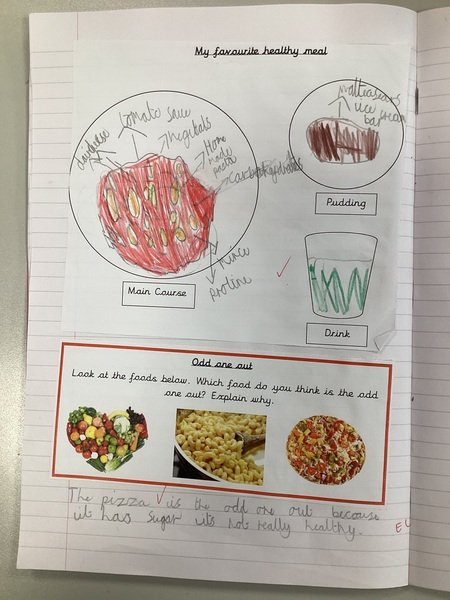 My favourite healthy meal
tomato sauce
vegitals
Home
made
pasta
carbohydrates
mince
protine
Main Course
malteasers
ice cream
bar
Pudding
Drink
Odd one out
Look at the foods below. Which food do you think is the odd
one out? Explain why.
The pizza is the odd one out because
it has sugar its not really healthy.